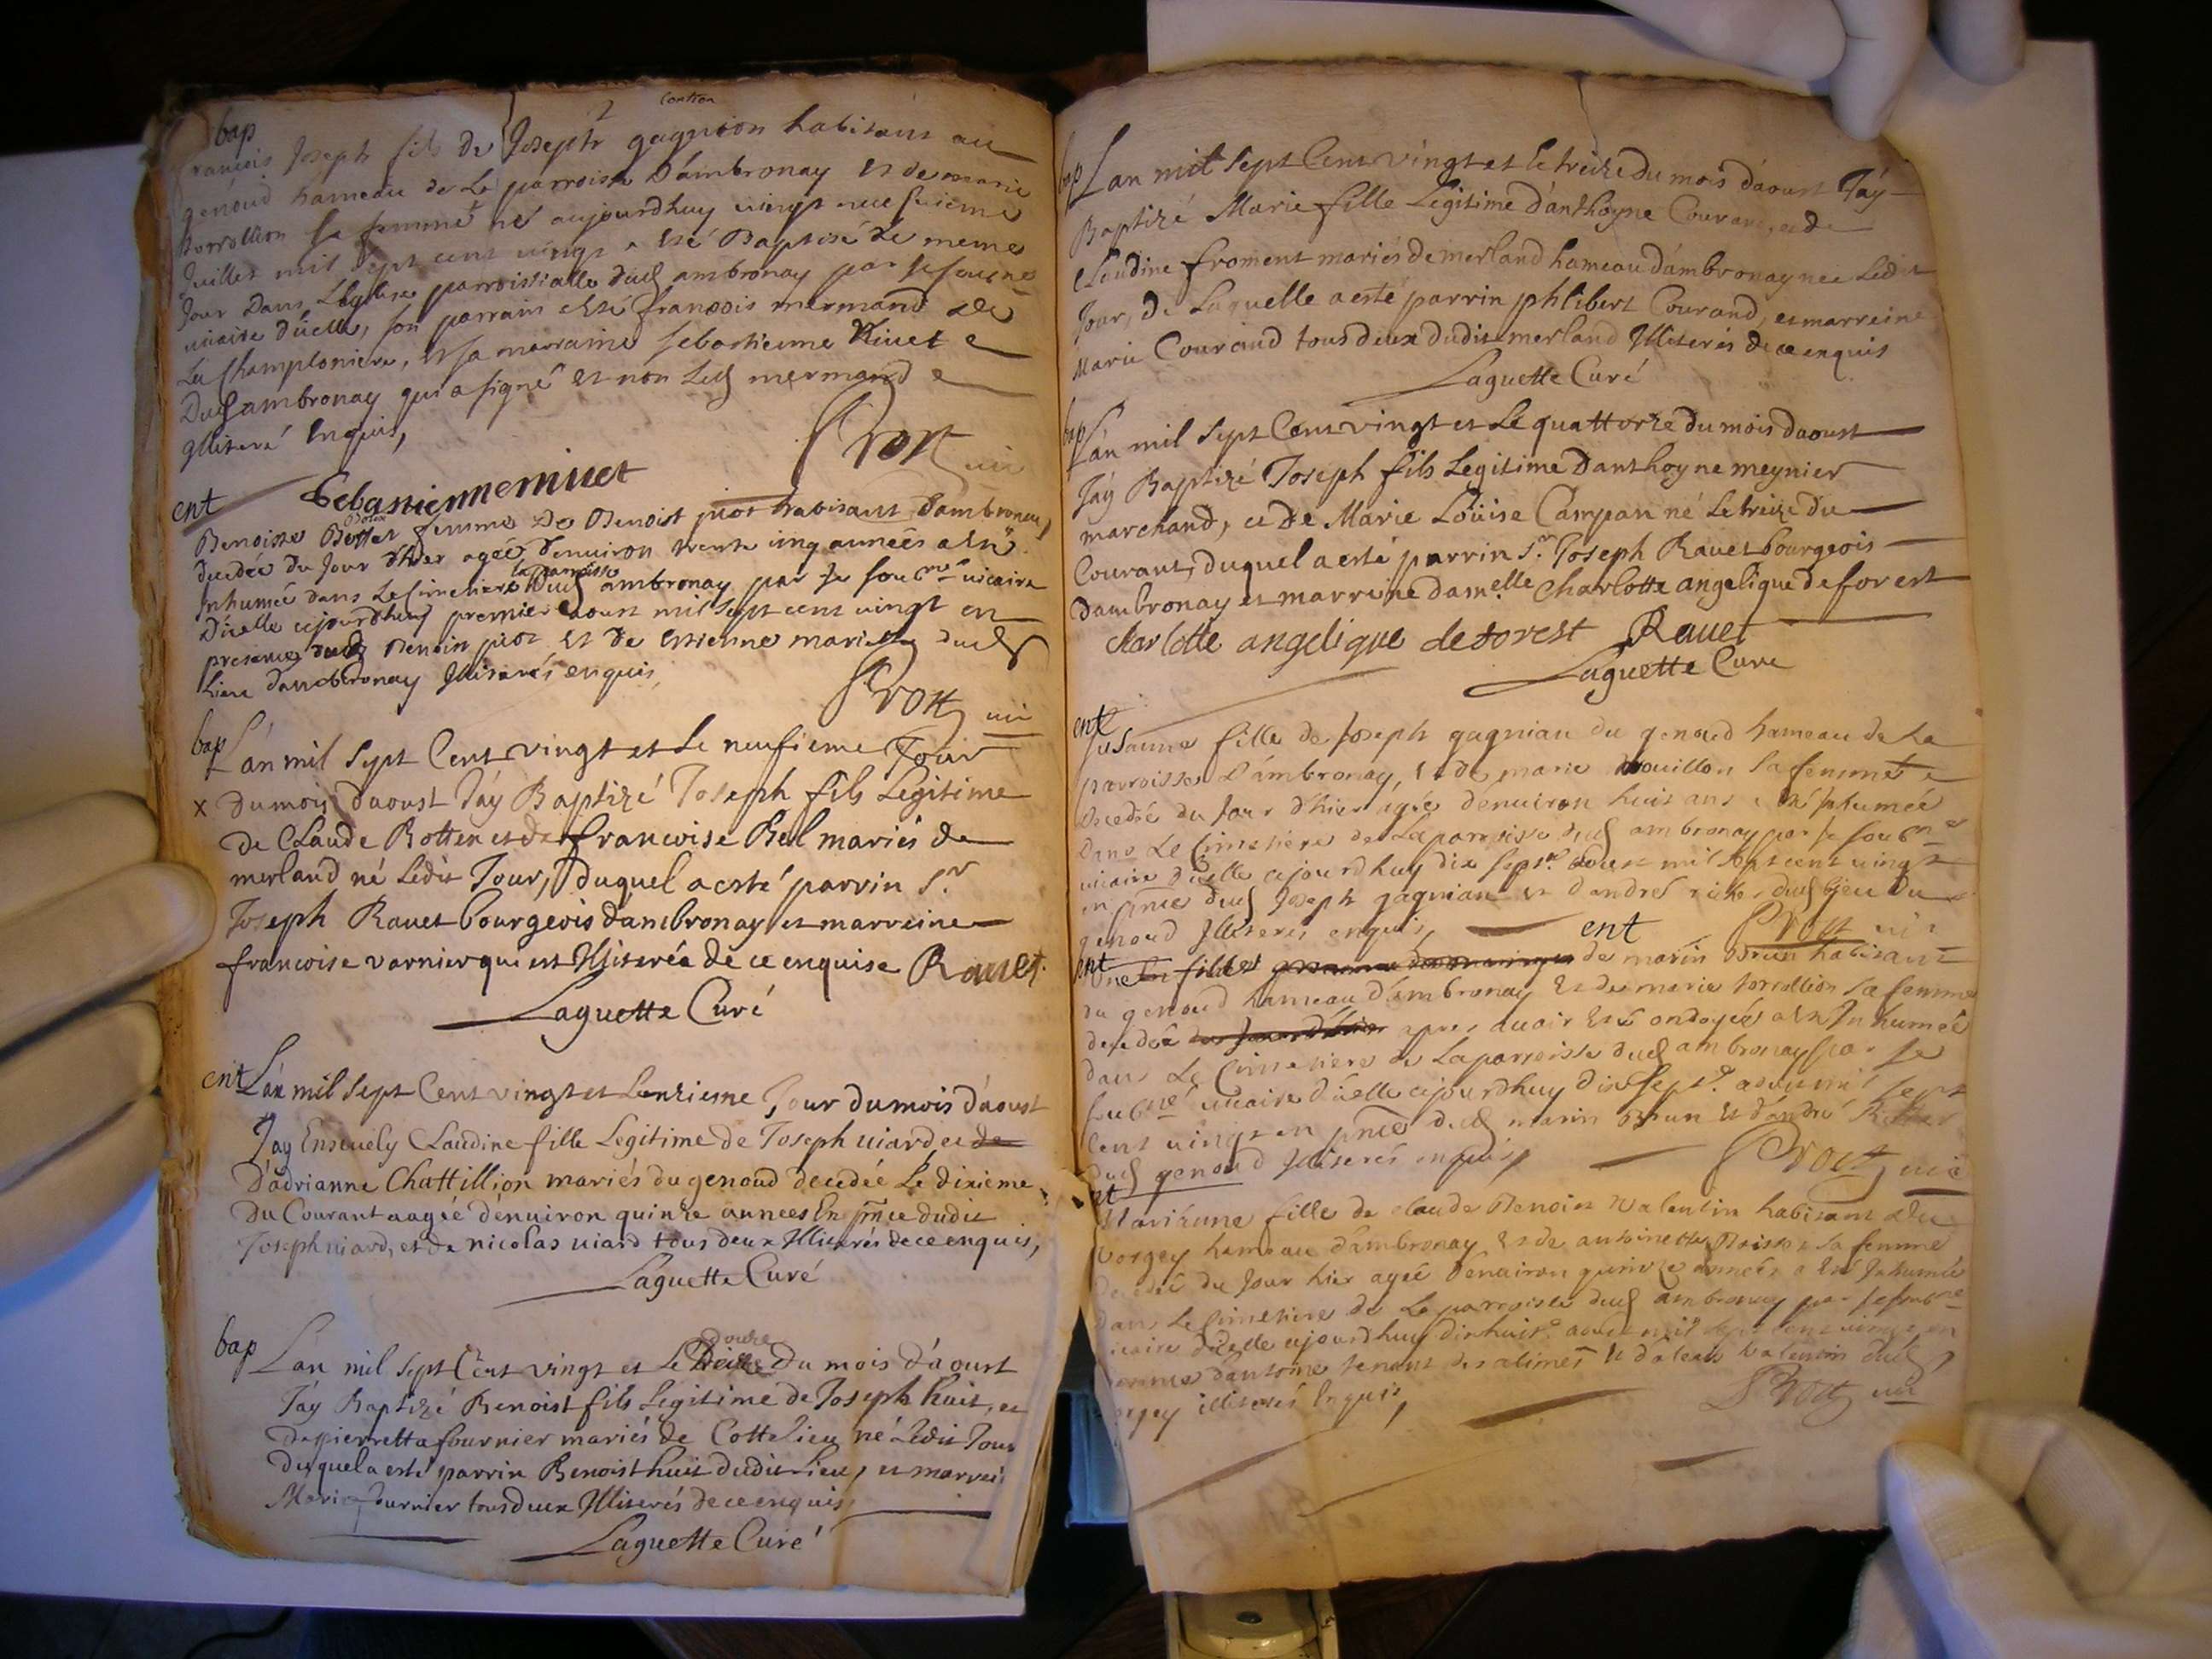 bap
françois Joseph fils de Joseph gagnion habitant au
genoud hameau de La parroisse D'ambronay et de marie
torrollion sa femme né aujourdhuy vingt neufvieme
Juillet mil sept cent vingt a esté Baptisé Le meme
Jour Dans L'eglise parroissialle dud ambronay par Je soubne
vicaire d'icelle, son parrain esté françois mermand de
La Championiere, et sa marraine sebastienne Nivet
Dud ambronay qui a signé et non Led mermand
Illiteré Enquis,
Prost vic
Sebastienne nivet
ent
Benoiste femme de Benoist juot habitant d'ambronay
decedée du Jour d'hier agée d'environ trente cinq années a esté
Inhumée dans Le cimetiere la parroisse dud ambronay par Je soubne vicaire
D'icelle ajourdhuy premier aoust mil sept cent vingt en
presence dud Benoist juot et de estienne dud
Lieu d'ambronay Illiterés enquis
Prost vic
bap L'an mil Sept Cent vingt et Le neufieme Jour
x du mois d'aoust J'ay Baptizé Joseph fils Legitime
de Claude Botten et de francoise Bel mariés de
merland né Ledit Jour, Duquel a esté parrin Sr
Joseph Ravet bourgeois d'ambronay et marreine
francoise varnier qui est Illiterée de ce enquise Ravet
Laguette Curé
ent L'an mil Sept Cent vingt et L'onzieme Jour du mois d'aoust
J'ay Ensevely Claudine fille Legitime de Joseph viard et de
D'adrianne Chattillion mariés du genoud decedée Le dixieme
du Courant aagée d'environ quinze années En pnce dudit
Joseph viard, et de nicolas viard tous deux Illiterés de ce enquis,
Laguette Curé
bap L'an mil Sept Cent vingt et Le douze du mois d'aoust
J'ay Baptizé Benoist fils Legitime de Joseph huit, et
de pierrette fournier mariés de Cottelieu né Ledit Jour
Duquel a esté parrin Benoist huit dudit Lieu, et marrei
Marie fournier tous deux Illiterés de ce enquis
Laguette Curé
bap L'an mil Sept Cent vingt et le treize du mois d'aoust J'ay
Baptizé Marie fille Legitime d'anthoyne Courand, et de
Claudine froment mariés de merland hameau d'ambronay nee Ledit
Jour, de Laquelle a esté parrin philibert Courand, et marreine
Marie Courand tous deux dudit merland Illiterés de ce enquis
Laguette Curé
bap L'an mil Sept Cent vingt et Le quattorze du mois daoust
J'ay Baptizé Joseph fils Legitime d'anthoyne meynier
marchand, et de Marie Loüise Campan né Le treize du
Courant, duquel a esté parrin Sr Joseph Ravet bourgeois
dambronay et marreine damelle Charlotte angelique deforest
charlotte angelique deforest Ravet
Laguette Curé
ent
Susanne fille de Joseph gagnian du genoud hameau de La
parroisse d'ambronay, et de marie sa femme
Decedée du Jour d'hier agée d'environ huit ans a esté Inhumée
dans Le Cimetiere de La parroisse dud ambronay par Je soubne
vicaire d'icelle ajourdhuy dix sept aoust mil sept cent vingt
en pnce dud Joseph gagnian et d'andré dud Lieu du
genoud Illiterés enquis, Prost vic
ent
ent Une fille de marin Brun habitant
du genoud hameau d'ambronay et de marie torrollion sa femme
decedée apres avoir esté ondoyée a esté Inhumée
dans Le Cimetiere de La parroisse dud ambronay par Je
soubne vicaire d'icelle ajourdhuy dix sept aoust mil sept
cent vingt en pnce dud marin Brun et d'andré
dud genoud Illiterés enquis,
Prost vic
fille de claude Benoist valentin habitant du
vorgey hameau d'ambronay et de antoinette sa femme
decedée du Jour hier agée d'environ quinze années a esté Inhumée
dans Le Cimetiere de La parroisse dud ambronay par Je soubne
vicaire d'icelle ajourdhuy dix huit aoust mil sept cent vingt en
d'antoine et valentin dud
vorgey illiterés Enquis,
Prost vic